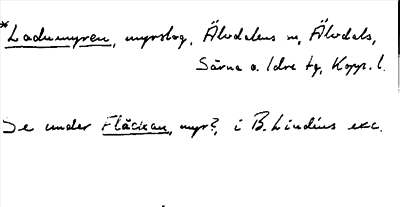 *Ladumyren, myrslog, Älvdalens m, Älvdals,
Särna o. Idre tg, Kopp. l.
Se under Fläckan, myr?, i B. Lindéus exc.